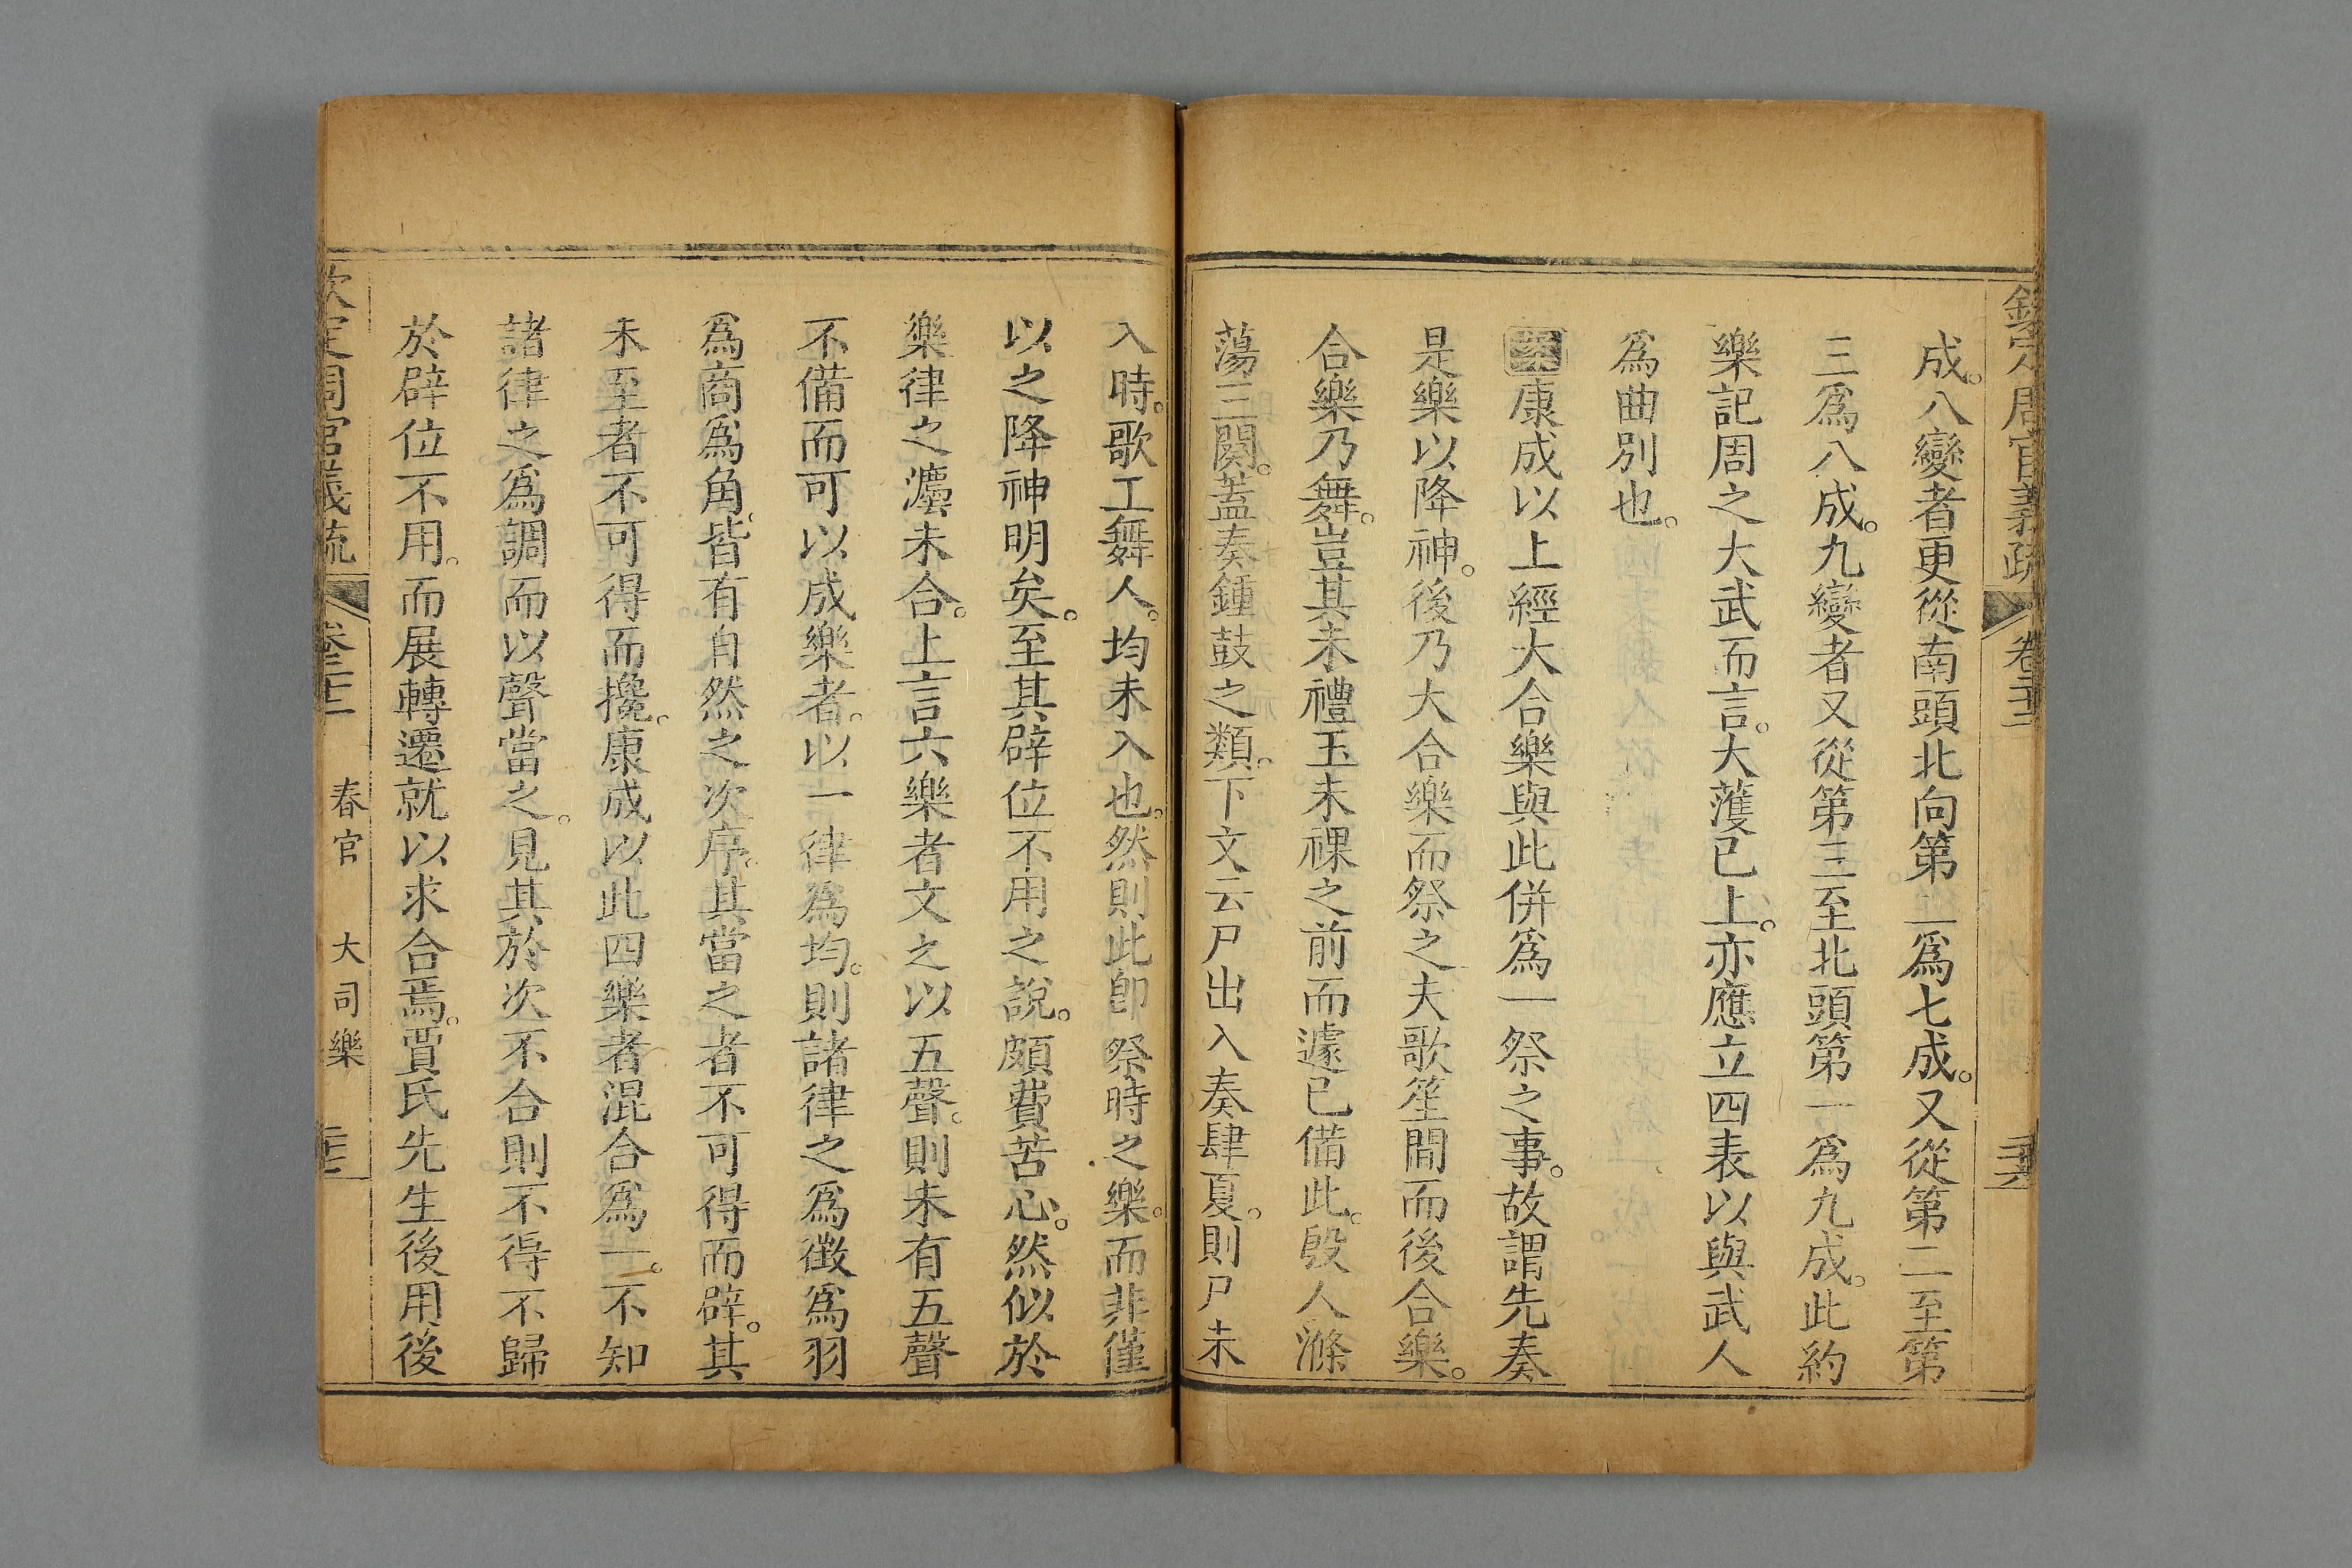 欽定周官義疏 卷二十二 二十六
成。八變者更從南頭北向第二爲七成。又從第二至第
三爲八成。九變者又從第三至北頭第一爲九成。此約
樂記周之大武而言。大濩已上。亦應立四表以與武人
爲曲別也。
案康成以上經大合樂與此併爲一祭之事。故謂先奏
是樂以降神。後乃大合樂而祭之夫歌笙間而後合樂。
合樂乃舞。豈其未禮玉未祼之前而遽已備此。殷人滌
蕩三闋。蓋奏鍾鼓之類。下文云尸出入奏肆夏。則尸未
入時。歌工舞人。均未入也。然則此卽祭時之樂。而非僅
以之降神明矣。至其辟位不用之說。頗費苦心。然似於
樂律之灋未合。上言六樂者文之以五聲。則未有五聲
不備而可以成樂者。以一律爲均。則諸律之爲徵爲羽
爲商爲角。皆有自然之次序。其當之者不可得而辟。其
未至者不可得而攙。康成以此四樂者混合爲一。不知
諸律之爲調而以聲當之。見其於次不合則不得不歸
於辟位不用。而展轉遷就以求合焉。賈氏先生後用後
欽定周官義疏 卷二十二 春官 大司樂 二十七